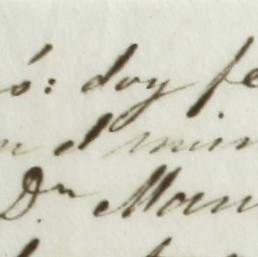 ó: doy fe
n el min
Dn Man